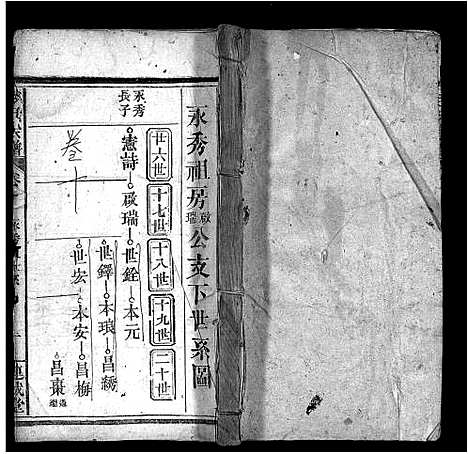 永秀祖房啟瑞公支下世系圖
廿六世 十七世 十八世 十九世 二十世
永秀長子
憲詩 啟瑞 世銓 本元
世鐸 本琅 昌綉
世宏 本安 昌梅
昌棗
卷十
連城堂